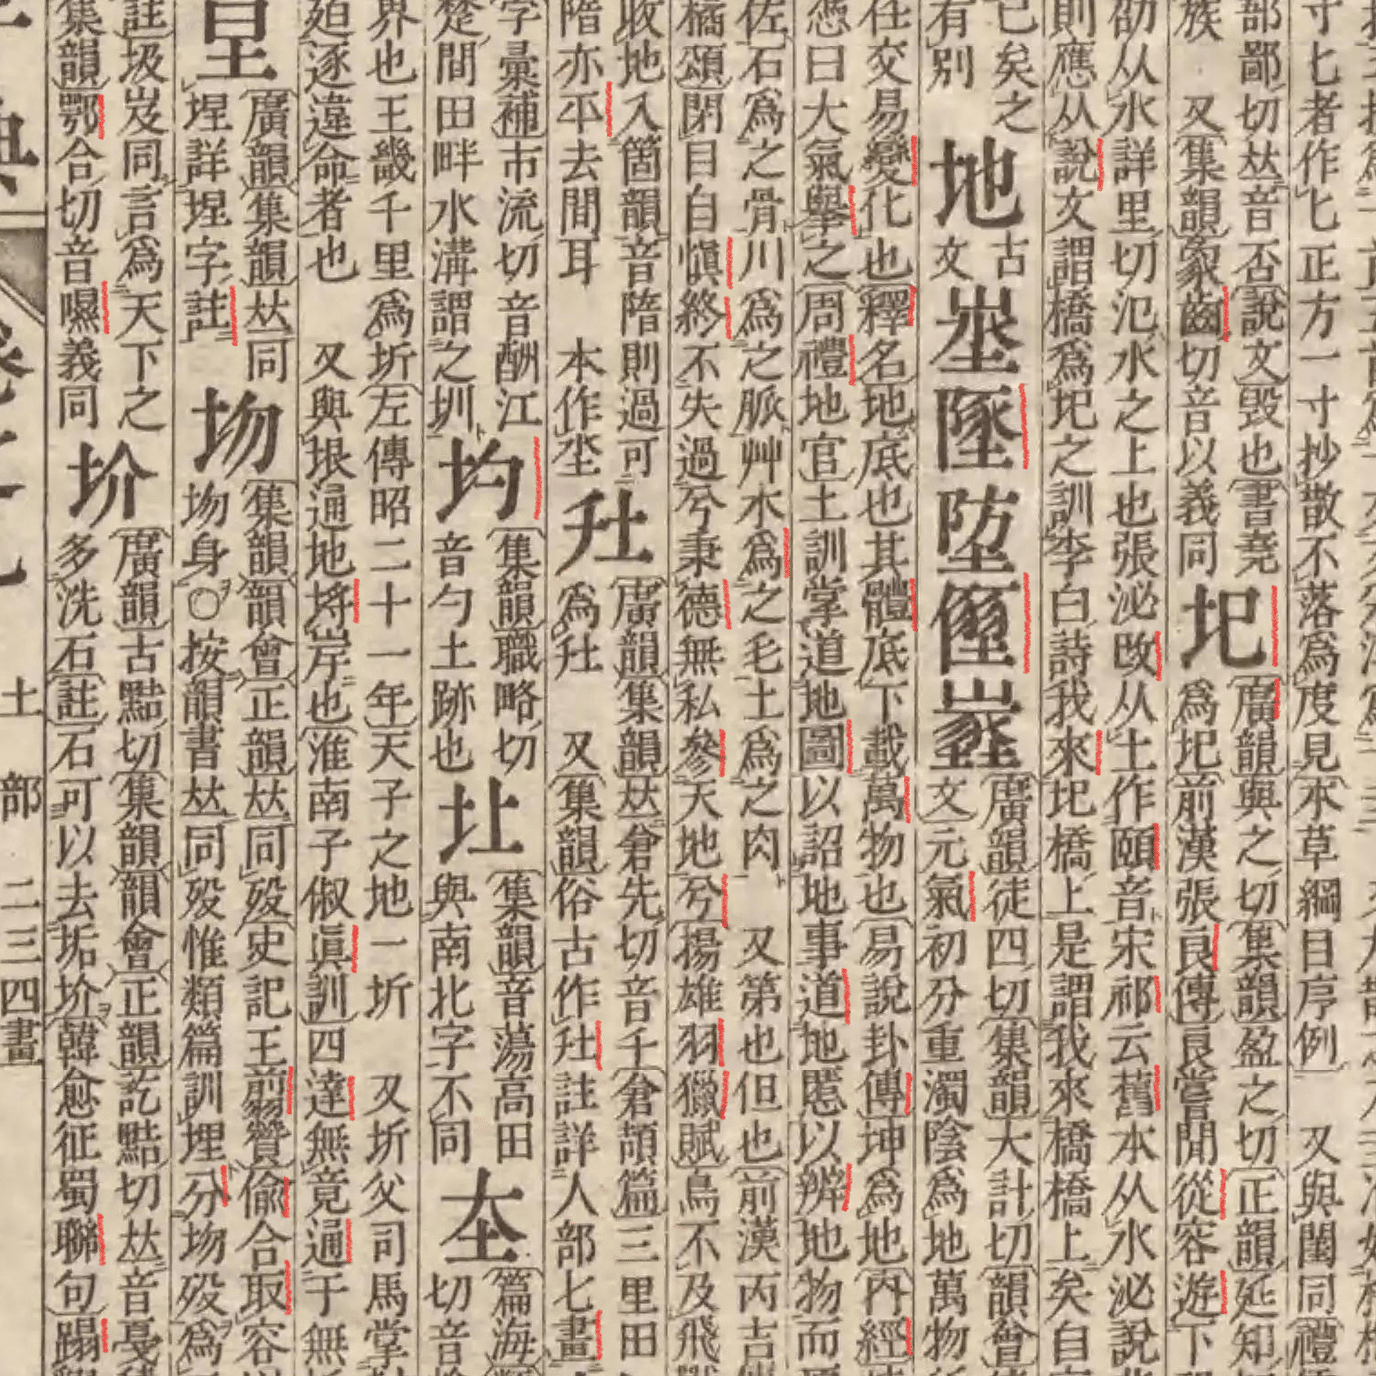 寸七者作匕正方一寸抄散不落爲度見本草綱目序例 又與闔同禮
部鄙切𠀤音否說文毀也書堯
族 又集韻象齒切音以義同
圯
廣韻與之切集韻盈之切正韻延知
爲圯前漢張良傳良嘗閒從容遊下
劭从水詳里切汜水之上也張泌改从土作頤音宋祁云舊本从水泌說
則應从說文謂橋爲圯之訓李白詩我來圯橋上是謂我來橋橋上矣自
已矣之
有別
地
古
文
埊墬埅
廣韻徒四切集韻大計切韻會
文元氣初分重濁陰爲地萬物
在交易變化也釋名地底也其體底下載萬物也易說卦傳坤爲地內經
憑曰大氣舉之周禮地官土訓掌道地圖以詔地事道地慝以辨地物而
佐石爲之骨川爲之脈艸木爲之毛土爲之肉 又第也但也前漢丙吉
橘頌閉目自愼終不失過兮秉德無私參天地兮揚雄羽獵賦鳥不及飛
收地入箇韻音隋則過可
隋亦平去間耳 本作坔
圱
廣韻集韻𠀤倉先切音千倉頡篇三里田
爲圱 又集韻俗古作圱註詳人部七畫
字彙補市流切音酬江
楚間田畔水溝謂之圳
均
集韻職略切
音勺土跡也
圵
集韻音蕩高田
與南北字不同
夳
篇海
切音
界也王畿千里爲圻左傳昭二十一年天子之地一圻 又圻父司馬掌
迫逐違命者也 又與垠通地垺岸也淮南子俶眞訓四達無竟通于無
廣韻集韻𠀤同
埕詳埕字註
圽
集韻韻會正韻𠀤同歿史記王翦贊偷合取容
圽身○按韻書𠀤同歿惟類篇訓埋分圽歿爲
註圾岌同言爲天下之
集韻鄂合切音義同
圿
廣韻古黠切集韻韻會正韻訖黠切𠀤音戞
多洗石註石可以去垢圿韓愈征蜀聯句蹋
土部 二三四畫